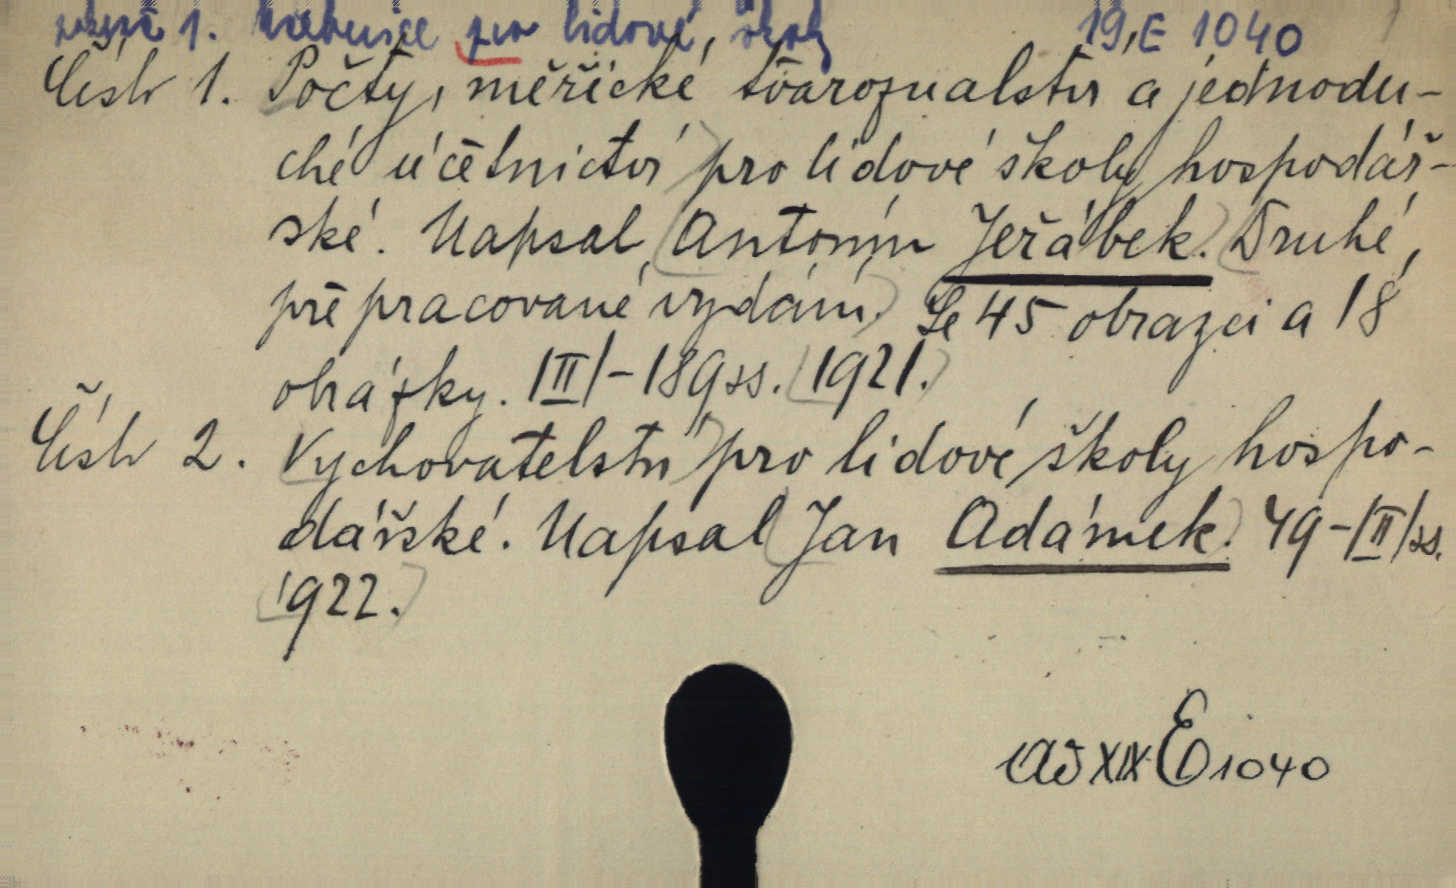 1. Učebnice pro lidové školy 19 E 1040
Část 1. Počty, měřické tvaroznalství a jednodu-
ché účetnictví pro lidové školy hospodář-
ské. Napsal Antonín Jeřábek. Druhé,
přepracované vydání. Se 45 obrazci a 18
obrázky. |III|-189 ss. 1921.
Část 2. Vychovatelství pro lidové školy hospo-
dářské. Napsal Jan Adámek. 49-|II|ss.
1922.
ad XIX E 1040